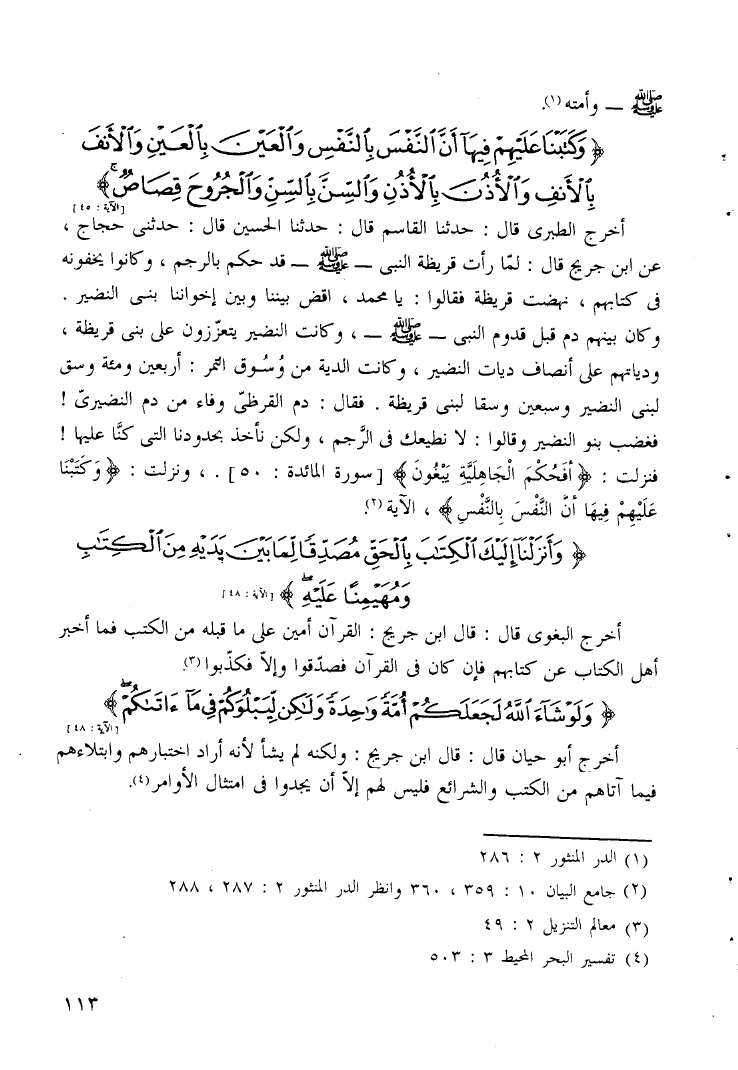 ﷺ ــ وأمته (١).
﴿ وَكَتَبْنَا عَلَيْهِمْ فِيهَآ أَنَّ ٱلنَّفْسَ بِٱلنَّفْسِ وَٱلْعَيْنَ بِٱلْعَيْنِ وَٱلْأَنفَ
بِٱلْأَنفِ وَٱلْأُذُنَ بِٱلْأُذُنِ وَٱلسِّنَّ بِٱلسِّنِّ وَٱلْجُرُوحَ قِصَاصٌ ۚ ﴾
[الآية : ٤٥]
أخرج الطبرى قال : حدثنا القاسم قال : حدثنا الحسين قال : حدثنى حجاج ،
عن ابن جريج قال : لمّا رأت قريظة النبى ــ ﷺ ــ قد حكم بالرجم ، وكانوا يخفونه
فى كتابهم ، نهضت قريظة فقالوا : يا محمد ، اقض بيننا وبين إخواننا بنى النضير .
وكان بينهم دم قبل قدوم النبى ــ ﷺ ــ ، وكانت النضير يتعزّزون على بنى قريظة ،
ودياتهم على أنصاف ديات النضير ، وكانت الدية من وُسُوق التمر : أربعين ومئة وسق
لبنى النضير وسبعين وسقا لبنى قريظة . فقال : دم القرظىّ وفاء من دم النضيرىّ !
فغضب بنو النضير وقالوا : لا نطيعك فى الرَّجم ، ولكن نأخذ بحدودنا التى كنَّا عليها !
فنزلت : ﴿ أَفَحُكْمَ الْجَاهِلِيَّةِ يَبْغُونَ ﴾ [ سورة المائدة : ٥٠ ] . ، ونزلت : ﴿ وَكَتَبْنَا
عَلَيْهِمْ فِيهَا أَنَّ النَّفْسَ بِالنَّفْسِ ﴾ ، الآية (٢).
﴿ وَأَنزَلْنَآ إِلَيْكَ ٱلْكِتَٰبَ بِٱلْحَقِّ مُصَدِّقًا لِّمَا بَيْنَ يَدَيْهِ مِنَ ٱلْكِتَٰبِ
وَمُهَيْمِنًا عَلَيْهِ ۖ ﴾ [الآية : ٤٨]
أخرج البغوى قال : قال ابن جريج : القرآن أمين على ما قبله من الكتب فما أخبر
أهل الكتاب عن كتابهم فإن كان فى القرآن فصدّقوا وإلاّ فكذّبوا (٣).
﴿ وَلَوْ شَآءَ ٱللَّهُ لَجَعَلَكُمْ أُمَّةً وَٰحِدَةً وَلَٰكِن لِّيَبْلُوَكُمْ فِى مَآ ءَاتَىٰكُمْ ۖ ﴾
[الآية : ٤٨]
أخرج أبو حيان قال : قال ابن جريج : ولكنه لم يشأ لأنه أراد اختبارهم وابتلاءهم
فيما آتاهم من الكتب والشرائع فليس لهم إلاّ أن يجدوا فى امتثال الأوامر (٤).
(١) الدر المنثور ٢ : ٢٨٦
(٢) جامع البيان ١٠ : ٣٥٩ ، ٣٦٠ وانظر الدر المنثور ٢ : ٢٨٧ ، ٢٨٨
(٣) معالم التنزيل ٢ : ٤٩
(٤) تفسير البحر المحيط ٣ : ٥٠٣
١١٣